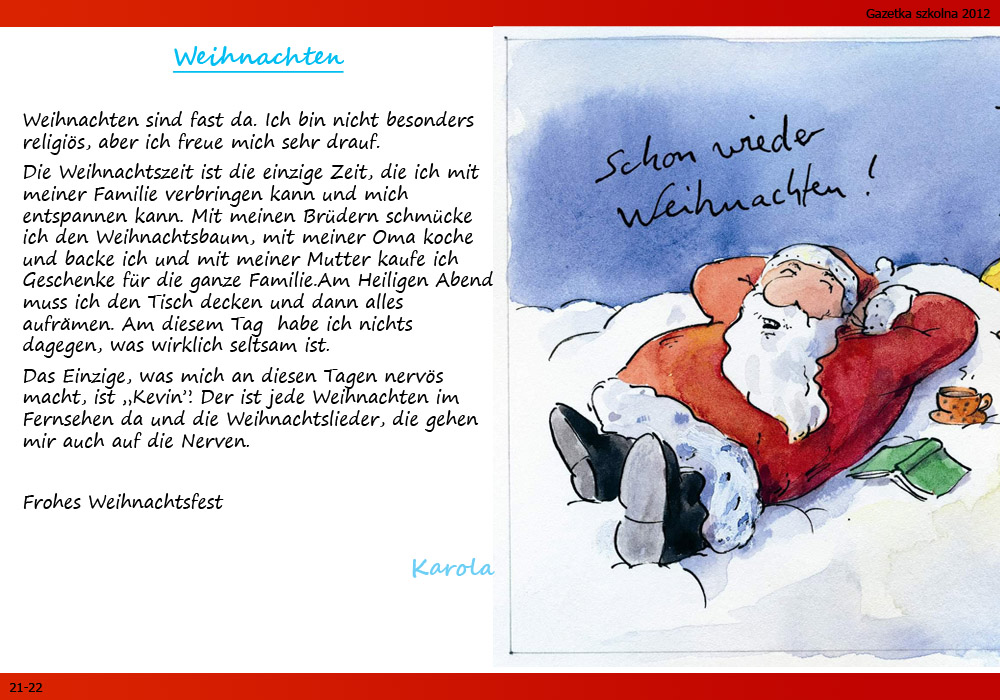 Gazetka szkolna 2012
Weihnachten
Weihnachten sind fast da. Ich bin nicht besonders
religiös, aber ich freue mich sehr drauf.
Die Weihnachtszeit ist die einzige Zeit, die ich mit
meiner Familie verbringen kann und mich
entspannen kann. Mit meinen Brüdern schmücke
ich den Weihnachtsbaum, mit meiner Oma koche
und backe ich und mit meiner Mutter kaufe ich
Geschenke für die ganze Familie.Am Heiligen Abend
muss ich den Tisch decken und dann alles
aufrämen. Am diesem Tag  habe ich nichts
dagegen, was wirklich seltsam ist.
Das Einzige, was mich an diesen Tagen nervös
macht, ist „Kevin”. Der ist jede Weihnachten im
Fernsehen da und die Weihnachtslieder, die gehen
mir auch auf die Nerven.
Frohes Weihnachtsfest
Karola
Schon wieder
Weihnachten !
21-22